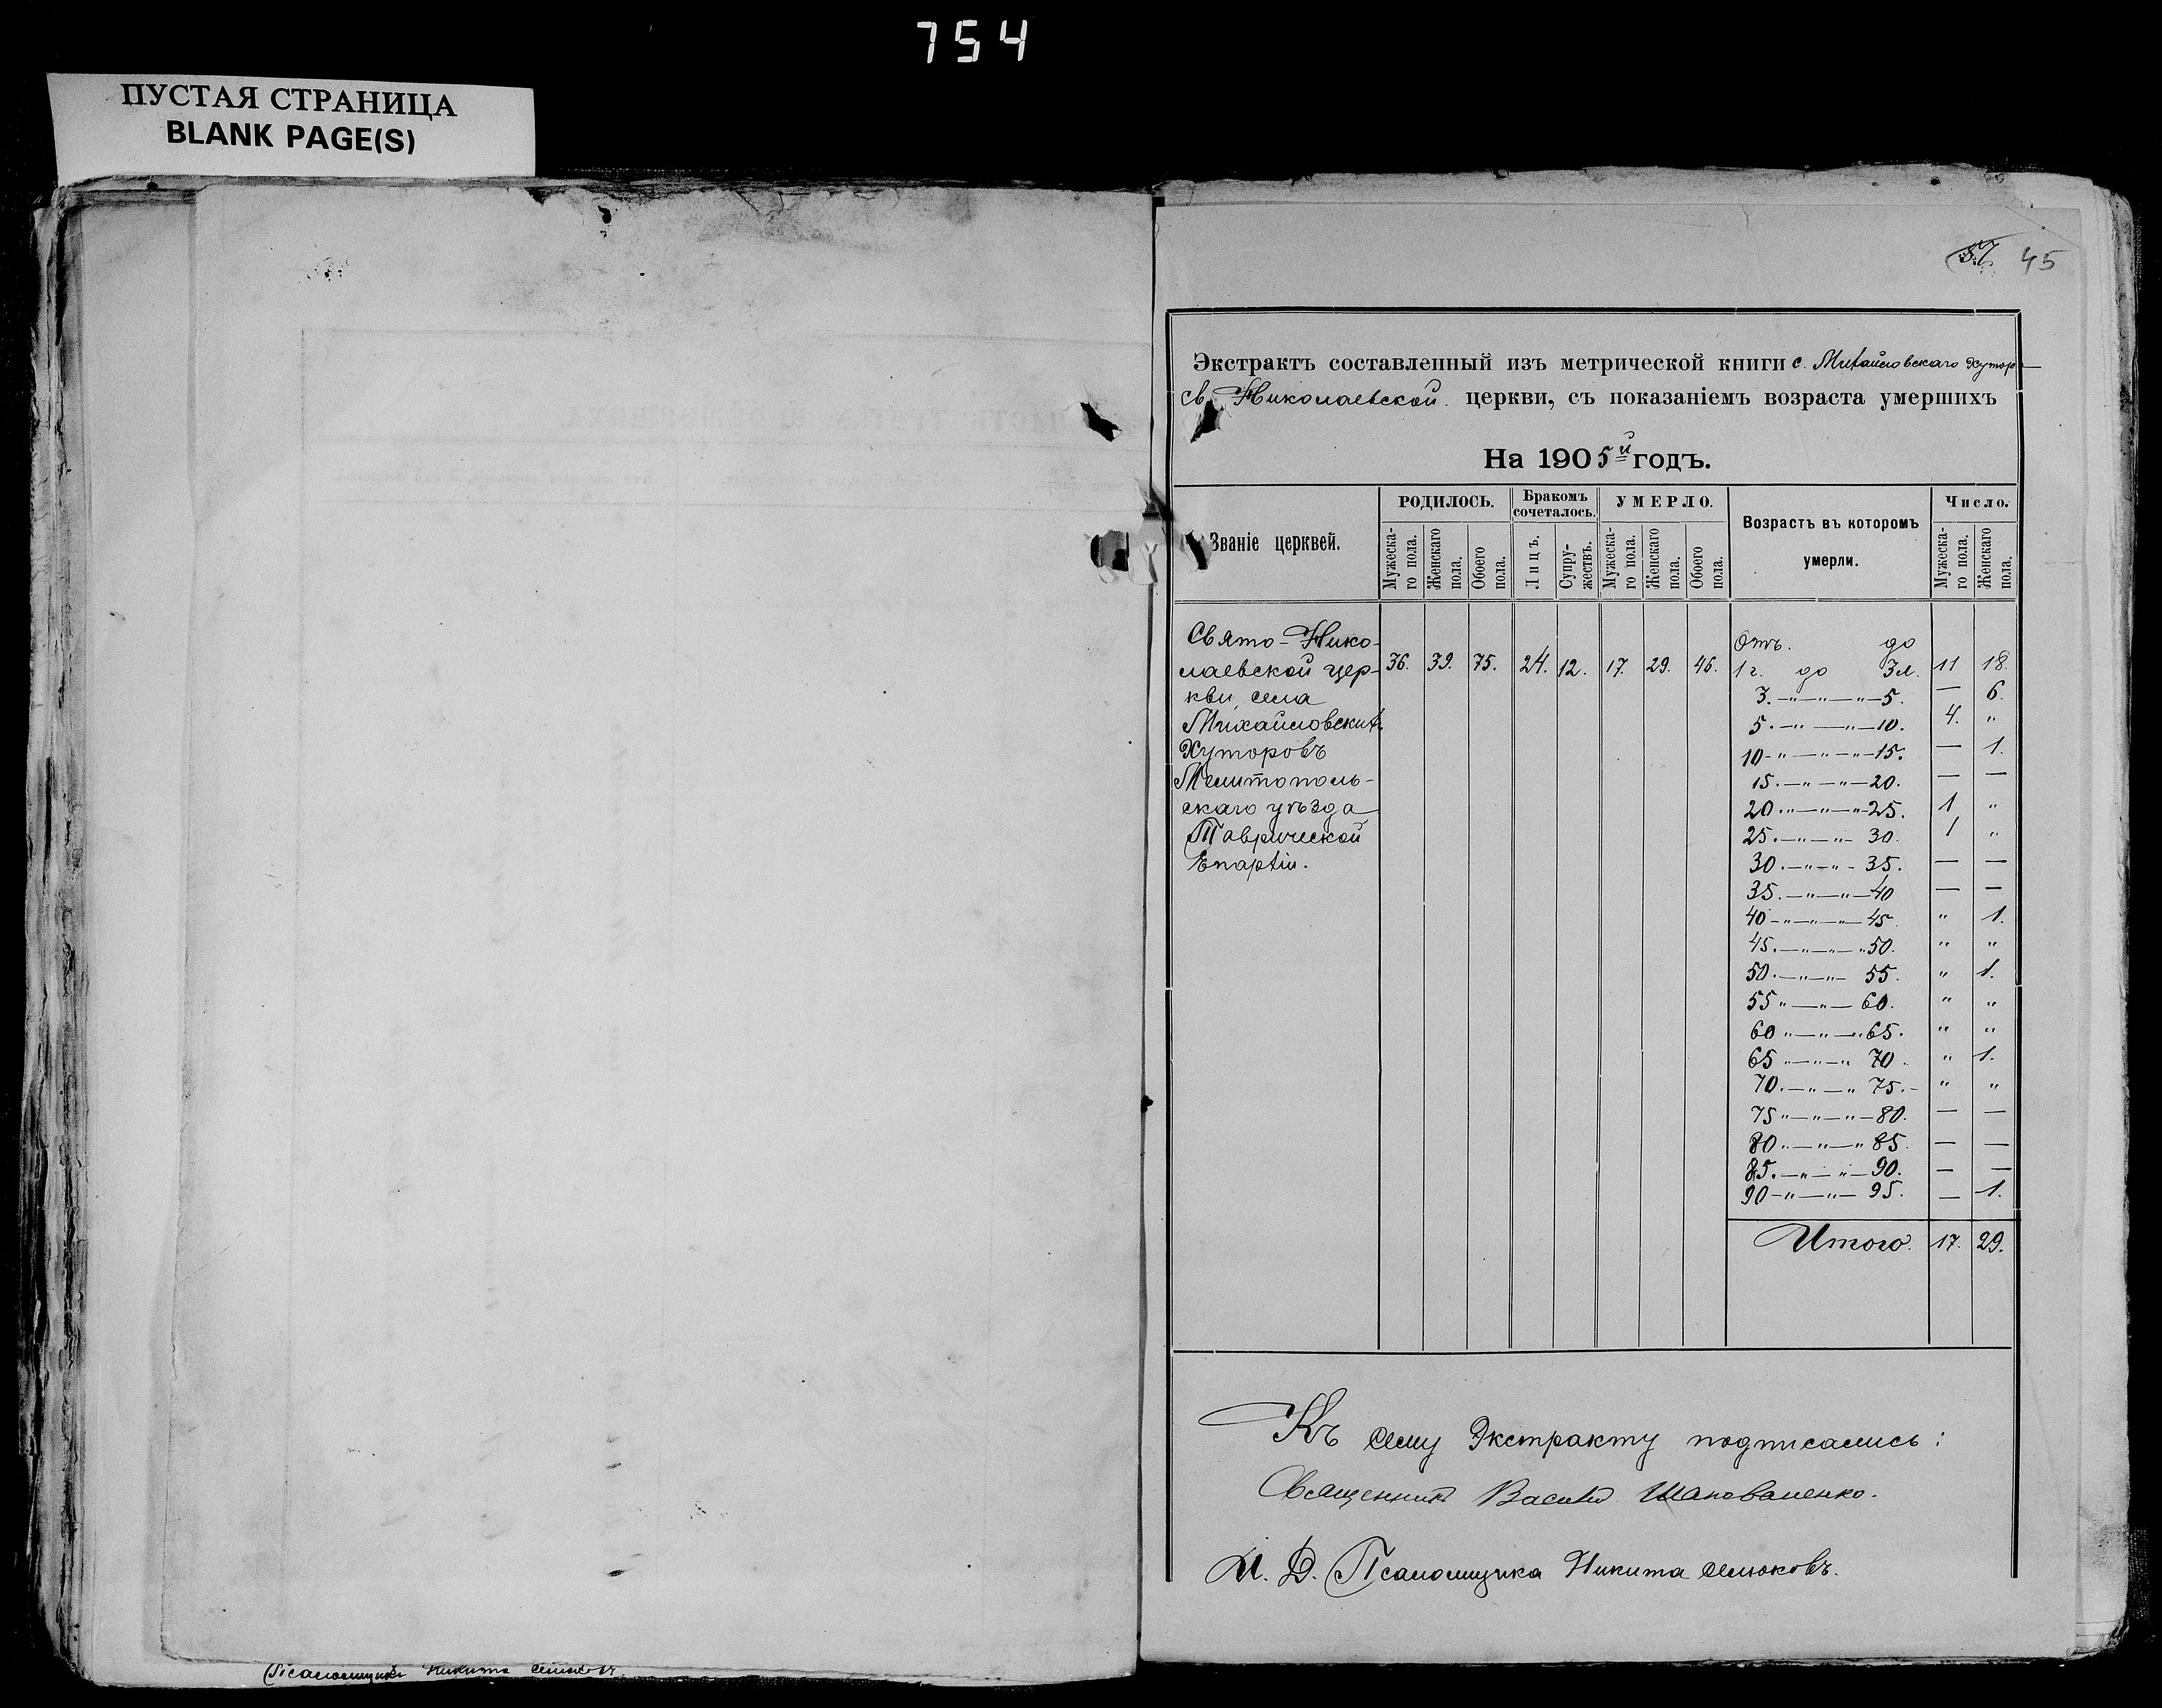 754
ПУСТАЯ СТРАНИЦА
BLANK PAGE(S)
57 45
Экстрактъ составленный изъ метрической книги с. Михайловскаго Хутор
св Николаевской церкви, съ показаніемъ возраста умершихъ
На 1905й годъ.
Званіе церквей. РОДИЛОСЬ. Бракомъ сочеталось. УМЕРЛО. Возрастъ въ которомъ умерли. Число.
Мужеска-го пола. Женскаго пола. Обоего пола. Лицъ. Супру-жествъ. Мужеска-го пола. Женскаго пола. Обоего пола. Мужеска-го пола. Женскаго пола.
Свято-Нико-
лаевской цер-
кви, села
Михайловскихъ
Хуторовъ
Мелитополь-
скаго уѣзда
Таврической
Епархіи.
36. 39. 75. 24. 12. 17. 29. 46.
Отъ. до
1 г. до 3 л. 11 18.
3. —"—"—"—5. — 6.
5. —"— —"—10. 4. "
10-"—"—"—15. — 1.
15. —"—"—20. — —
20. "—"—"—25. 1 "
25. —"—"— 30. 1 "
30. —"—"- 35. — —
35. —"—"—40 — —
40-"—"—"—45. " 1.
45. —"—"—"50. " "
50. —"—"— 55. " 1.
55 "—"— 60. " "
60 "—"—"65. " "
65 "—"—" 70. " 1.
70. —"—" 75. - " "
75 "—"—"—80. — —
80. "—"—" 85. — —
85. —"—"—90. — —
90-"—"— 95. — 1.
Итого. 17. 29.
Къ сему Экстракту подписались:
Священникъ Василій Шаповаленко.
И. Д. Псаломщика Никита Селюковъ.
Псаломщикъ Никита Селюковъ.